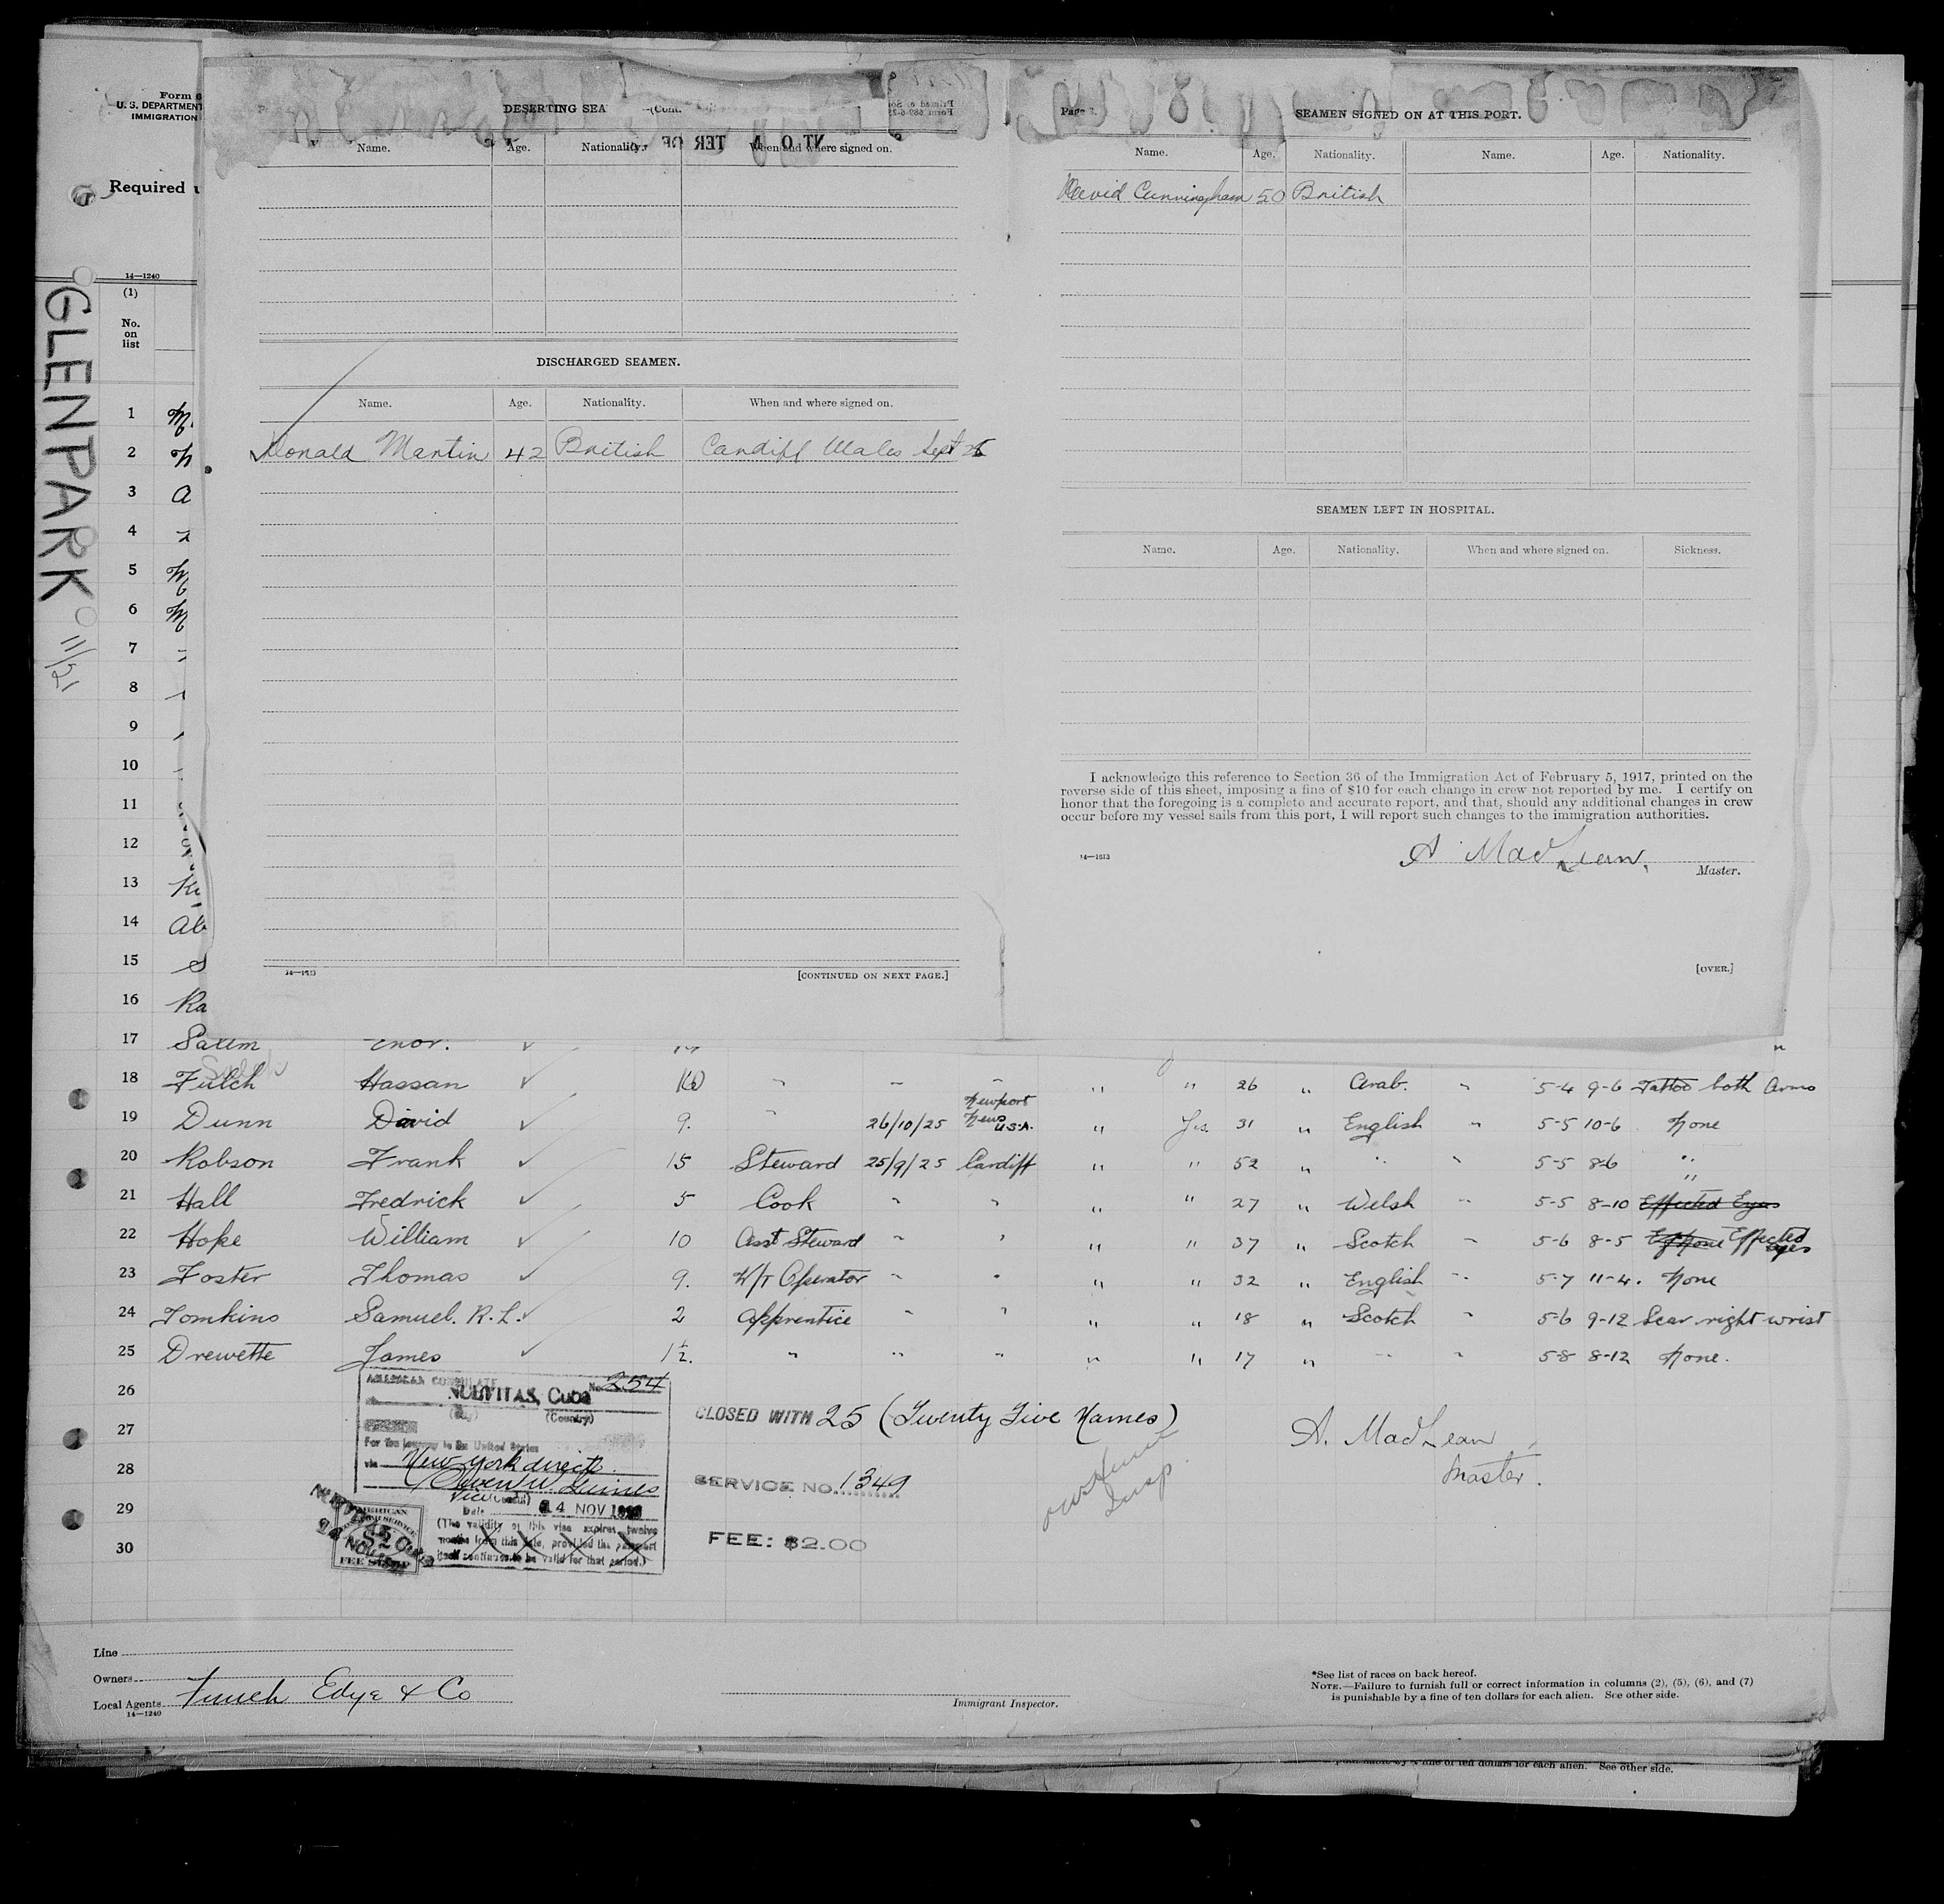 Form 6
U. S. DEPARTMENT
IMMIGRATION
Required
14—1240
(1)
No.
on
list
GLENPARK
11/21
DESERTING SEA (Cont.
Name. Age. Nationality. When and where signed on.
DISCHARGED SEAMEN.
Name. Age. Nationality. When and where signed on.
Donald Martin 42 British Cardiff Wales Sept 25
14—1613
[CONTINUED ON NEXT PAGE.]
Page 3.
SEAMEN SIGNED ON AT THIS PORT.
Name. Age. Nationality. Name. Age. Nationality.
David Cunningham 50 British
SEAMEN LEFT IN HOSPITAL.
Name. Age. Nationality. When and where signed on. Sickness.
I acknowledge this reference to Section 36 of the Immigration Act of February 5, 1917, printed on the
reverse side of this sheet, imposing a fine of $10 for each change in crew not reported by me. I certify on
honor that the foregoing is a complete and accurate report, and that, should any additional changes in crew
occur before my vessel sails from this port, I will report such changes to the immigration authorities.
14—1613
A MacLean,
Master.
[OVER.]
1
2
3
4
5
6
7
8
9
10
11
12
13
14
15
16 Ra
17 Salem
18 Fulch Hassan ✓ 10 " " " " " 26 " Arab. " 5-4 9-6 Tattoo both Arms
19 Dunn David ✓ 9. " 26/10/25 Newport News U.S.A. " Yes. 31 " English " 5-5 10-6 None
20 Robson Frank ✓ 15 Steward 25/9/25 Cardiff " " 52 " " " 5-5 8-6 "
21 Hall Fredrick ✓ 5 Cook " " " " 27 " Welsh " 5-5 8-10 Effected Eyes
22 Hope William ✓ 10 Asst Steward " " " " 37 " Scotch " 5-6 8-5 None Effected Eyes
23 Foster Thomas ✓ 9. W/T Operator " " " " 32 " English " 5-7 11-4. None
24 Tomkins Samuel. R. L. ✓ 2 Apprentice " " " " 18 " Scotch " 5-6 9-12 Scar right wrist
25 Drewette James ✓ 1½. " " " " " 17 " " " 5-8 8-12 None.
26
27
28
29
30
AMERICAN CONSULATE
NUEVITAS, Cuba No. 254
(City) (Country)
For the journey to the United States
via New York direct
Vice (Consul)
Date 14 NOV
(The validity of this visa expires twelve
months from this date, provided the passport
itself continues to be valid for that period.)
AMERICAN
SERVICE
$2
FEE STAMP
CLOSED WITH 25 (Twenty Five Names)
SERVICE NO. 1349
FEE: $2.00
A. MacLean
Master.
Insp.
Line
Owners
Local Agents Funch Edye & Co
14—1240
Immigrant Inspector.
*See list of races on back hereof.
NOTE.—Failure to furnish full or correct information in columns (2), (5), (6), and (7)
is punishable by a fine of ten dollars for each alien. See other side.
of ten dollars for each alien. See other side.